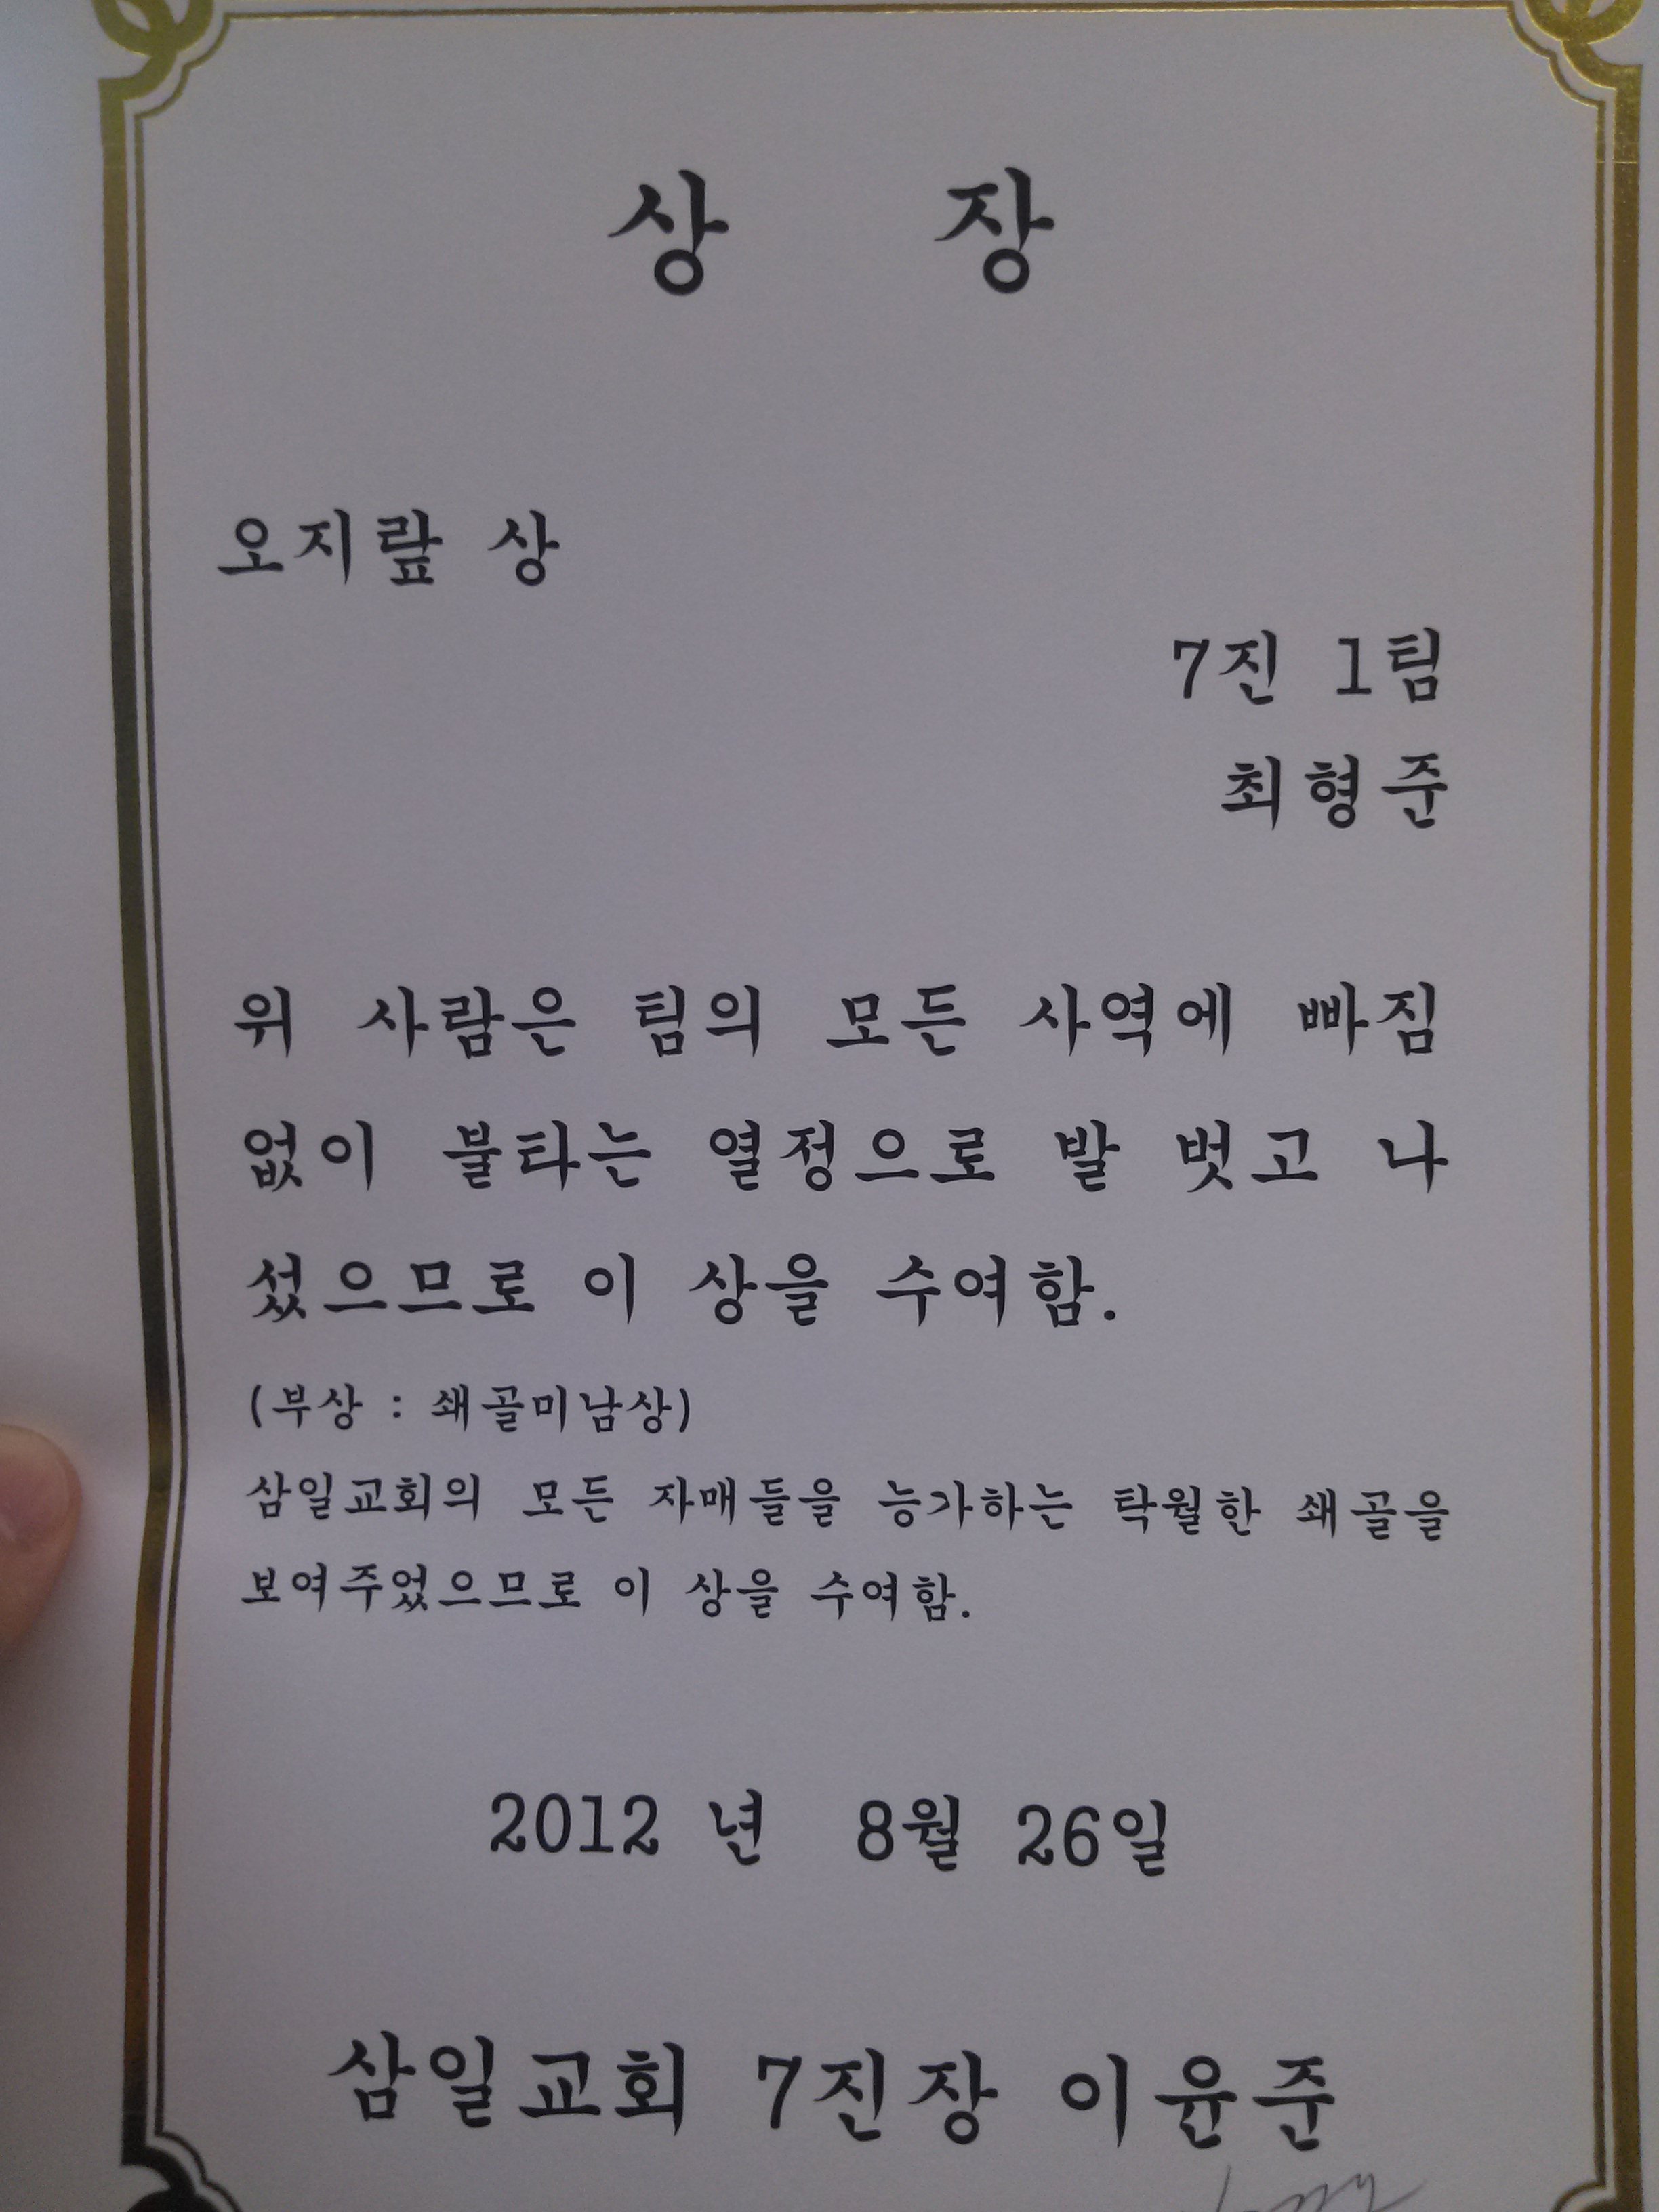 상 장
오지랖 상
7진 1팀
최형준
위 사람은 팀의 모든 사역에 빠짐
없이 불타는 열정으로 발 벗고 나
섰으므로 이 상을 수여함.
(부상 : 쇄골미남상)
삼일교회의 모든 자매들을 능가하는 탁월한 쇄골을
보여주었으므로 이 상을 수여함.
2012 년 8월 26일
삼일교회 7진장 이윤준